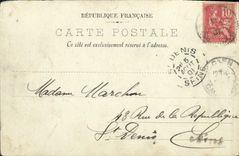 RÉPUBLIQUE FRANÇAISE
CARTE POSTALE
Ce côté est exclusivement réservé à l'adresse.
10
ST DENIS
SEINE
Madame Marchon
48 Rue de la République
St Denis
Seine